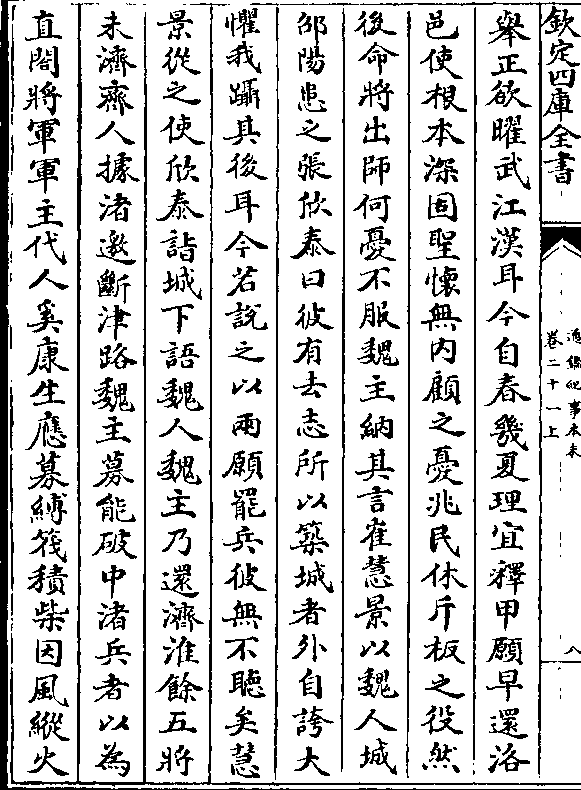 欽定四庫全書
通鑑紀事本末
卷二十一上
八
舉正欲曜武江漢耳今自春幾夏理宜釋甲願早還洛
邑使根本深固聖懷無内顧之憂兆民休斤板之役然
後命將出師何憂不服魏主納其言崔慧景以魏人城
邵陽患之張欣泰曰彼有去志所以築城者外自誇大
懼我躡其後耳今若說之以兩願罷兵彼無不聽矣慧
景從之使欣泰詣城下語魏人魏主乃還濟淮餘五將
未濟齊人據渚邀斷津路魏主募能破中渚兵者以為
直閤將軍軍主代人奚康生應募縛筏積柴因風縱火